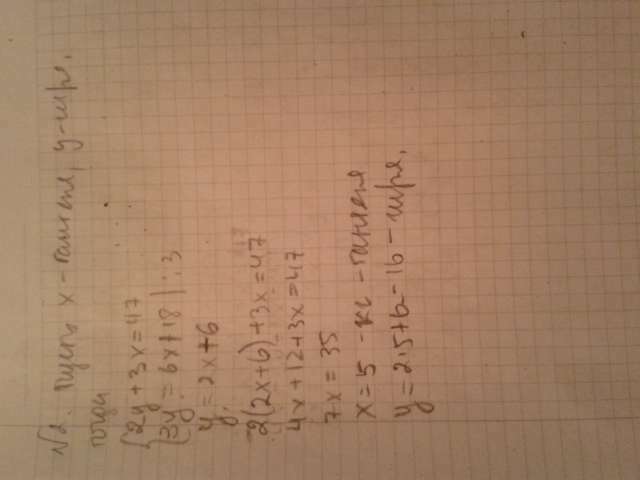 №2. Пусть x - гантели, y - гиря,
тогда
{2y + 3x = 47
{3y = 6x + 18 | : 3
y = 2x + 6
2(2x + 6) + 3x = 47
4x + 12 + 3x = 47
7x = 35
x = 5 - кг - гантеля
y = 2·5 + 6 - 16 - гиря.